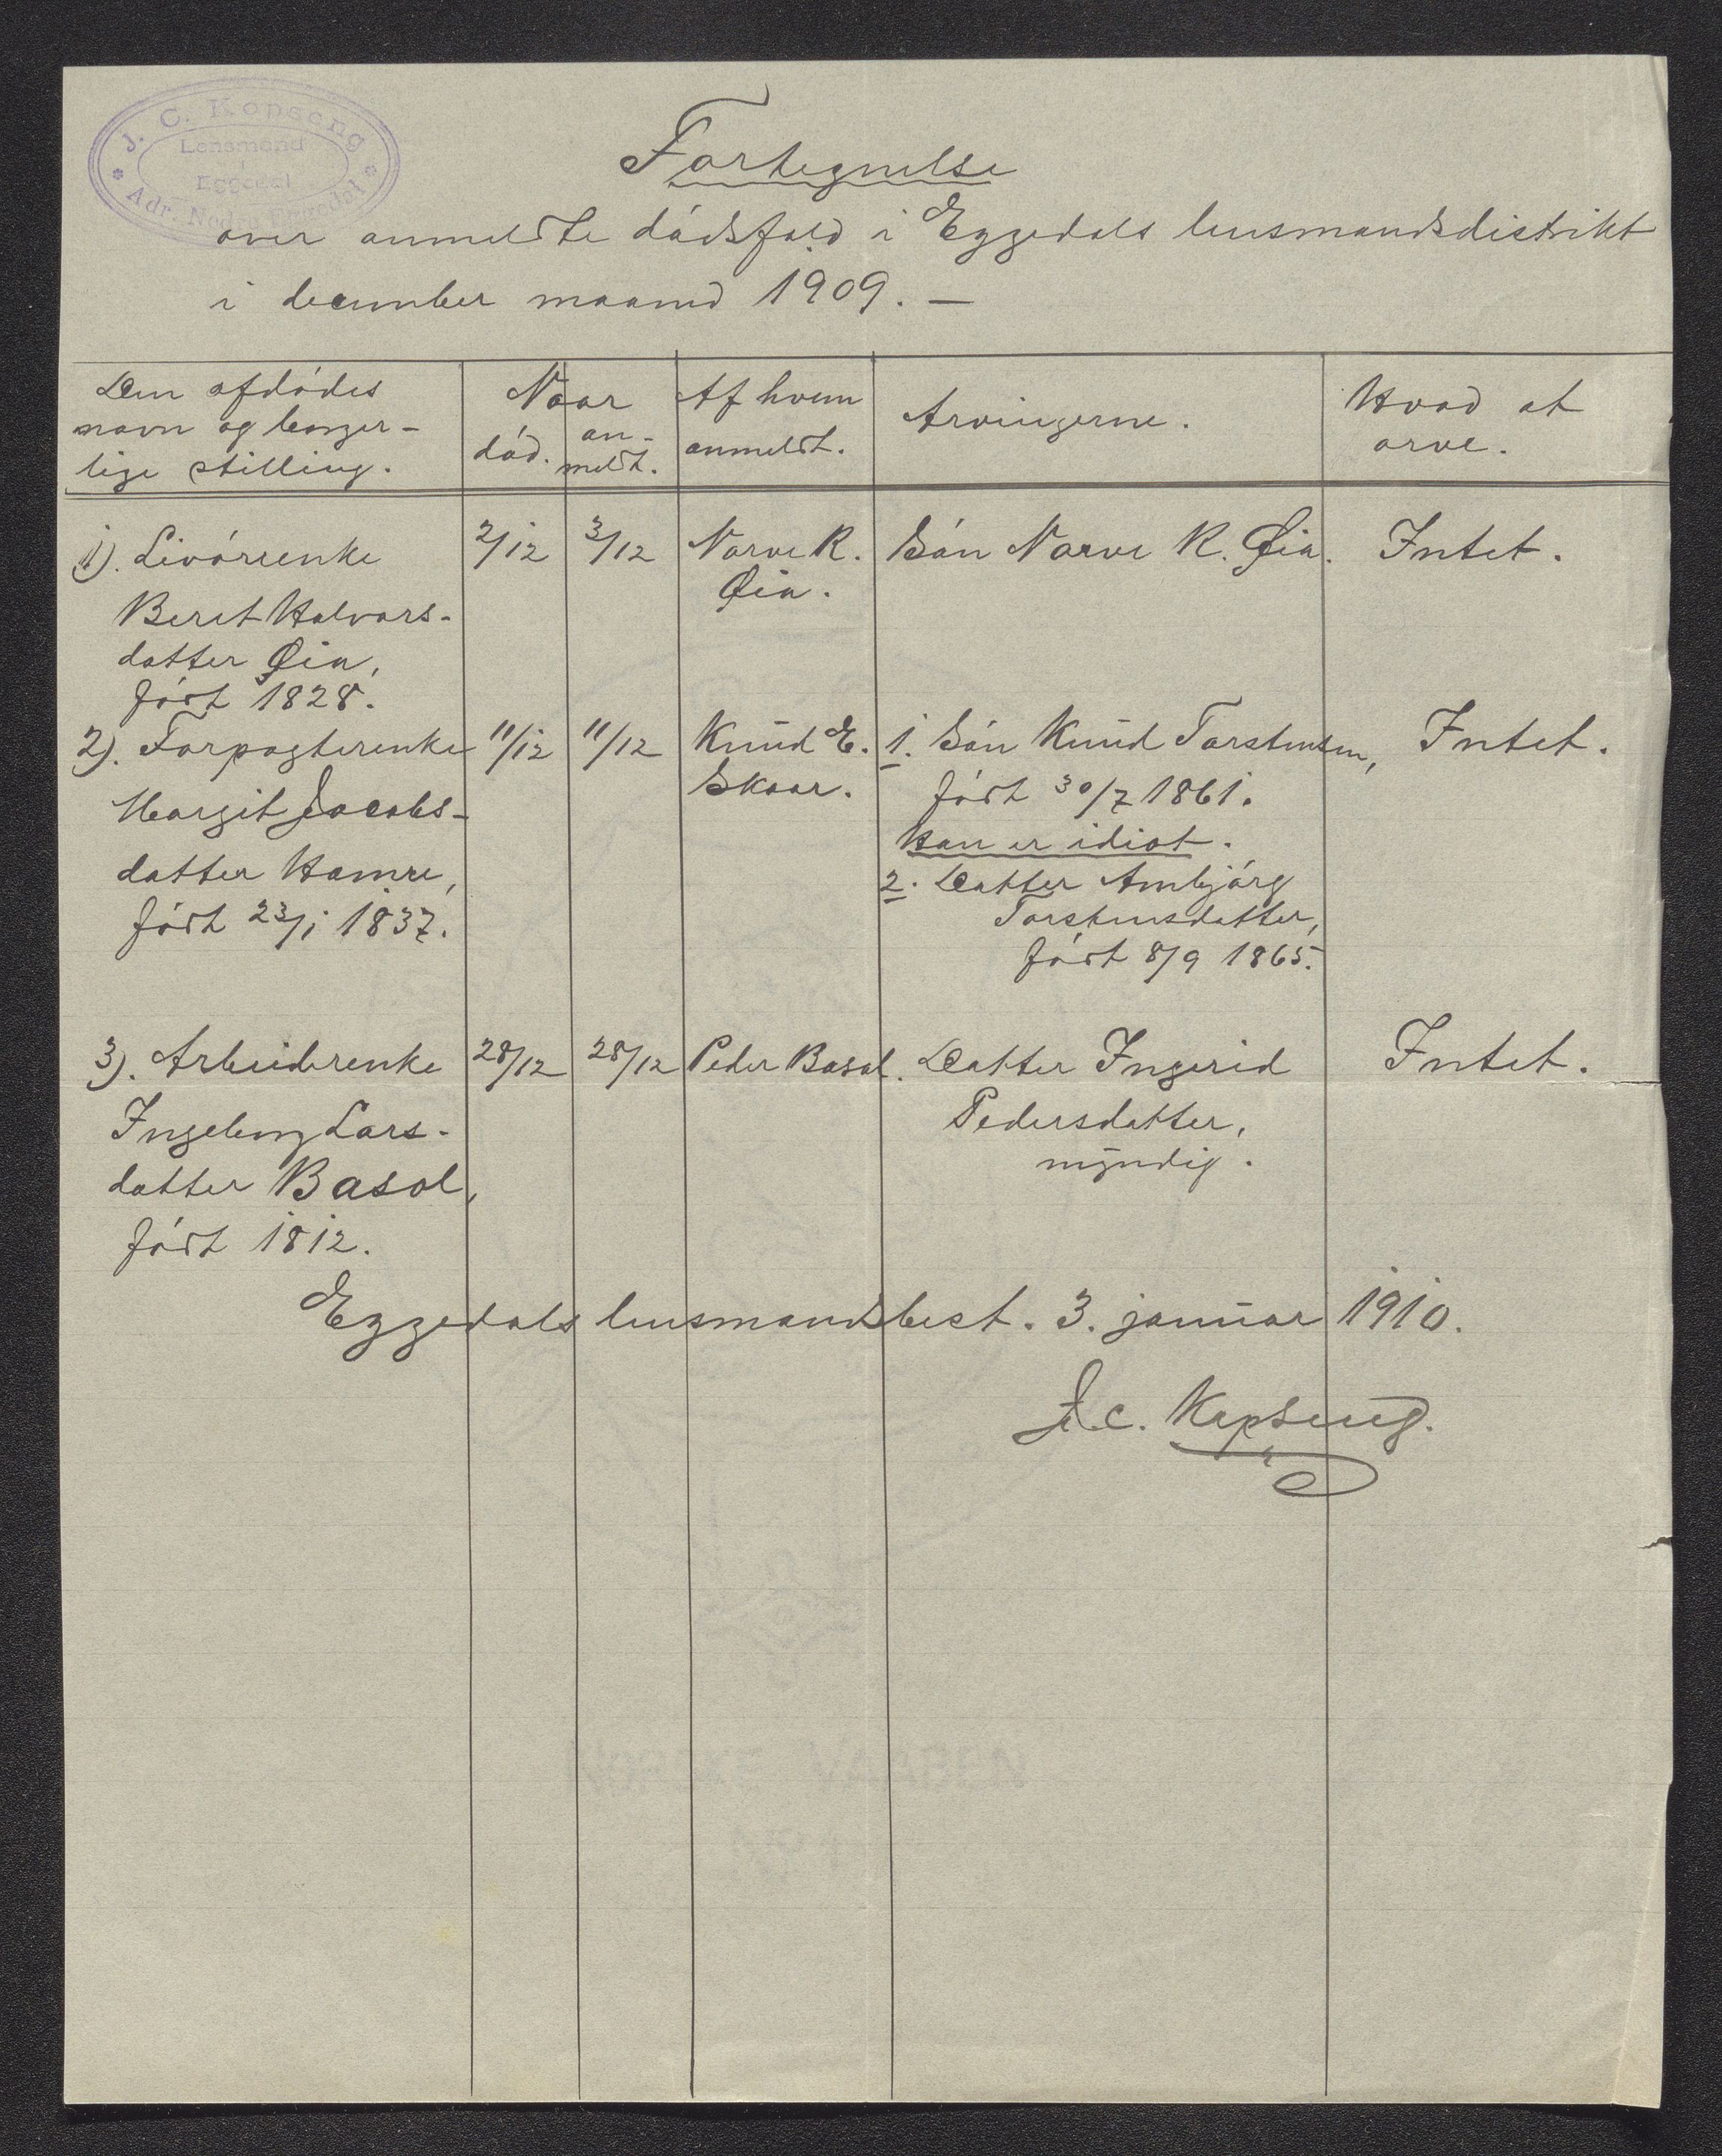 J. C. Kopseng
Lensmand
i
Eggedal
Adr. Nedre Eggedal
Fortegnelse
over anmeldte dödsfald i Eggedals lensmandsdistrikt
i december maaned 1909. —
Den afdödes
navn og borger-
lige stilling.
Naar
död.
an-
meldt.
Af hvem
anmeldt.
Arvingerne.
Hvad at
arve.
1). Livörenke
Berit Halvors-
datter Øia,
födt 1828.
2/12
3/12
Narve R.
Øia.
Sön Narve R. Øia.
Intet.
2). Forpagterenke
Margit Jacobs-
datter Hamre,
födt 23/1 1837.
11/12
11/12
Knud E.
Skaar.
1. Sön Knud Torstensen,
födt 30/7 1861.
Han er idiot.
2. Datter Ambjörg
Torstensdatter,
födt 8/9 1865.
Intet.
3). Arbeiderenke
Ingeborg Lars-
datter Basol,
födt 1812.
28/12
28/12
Peder Basol.
Datter Ingerid
Pedersdatter,
myndig.
Intet.
Eggedals lensmandsbest. 3. januar 1910.
J. C. Kopseng.